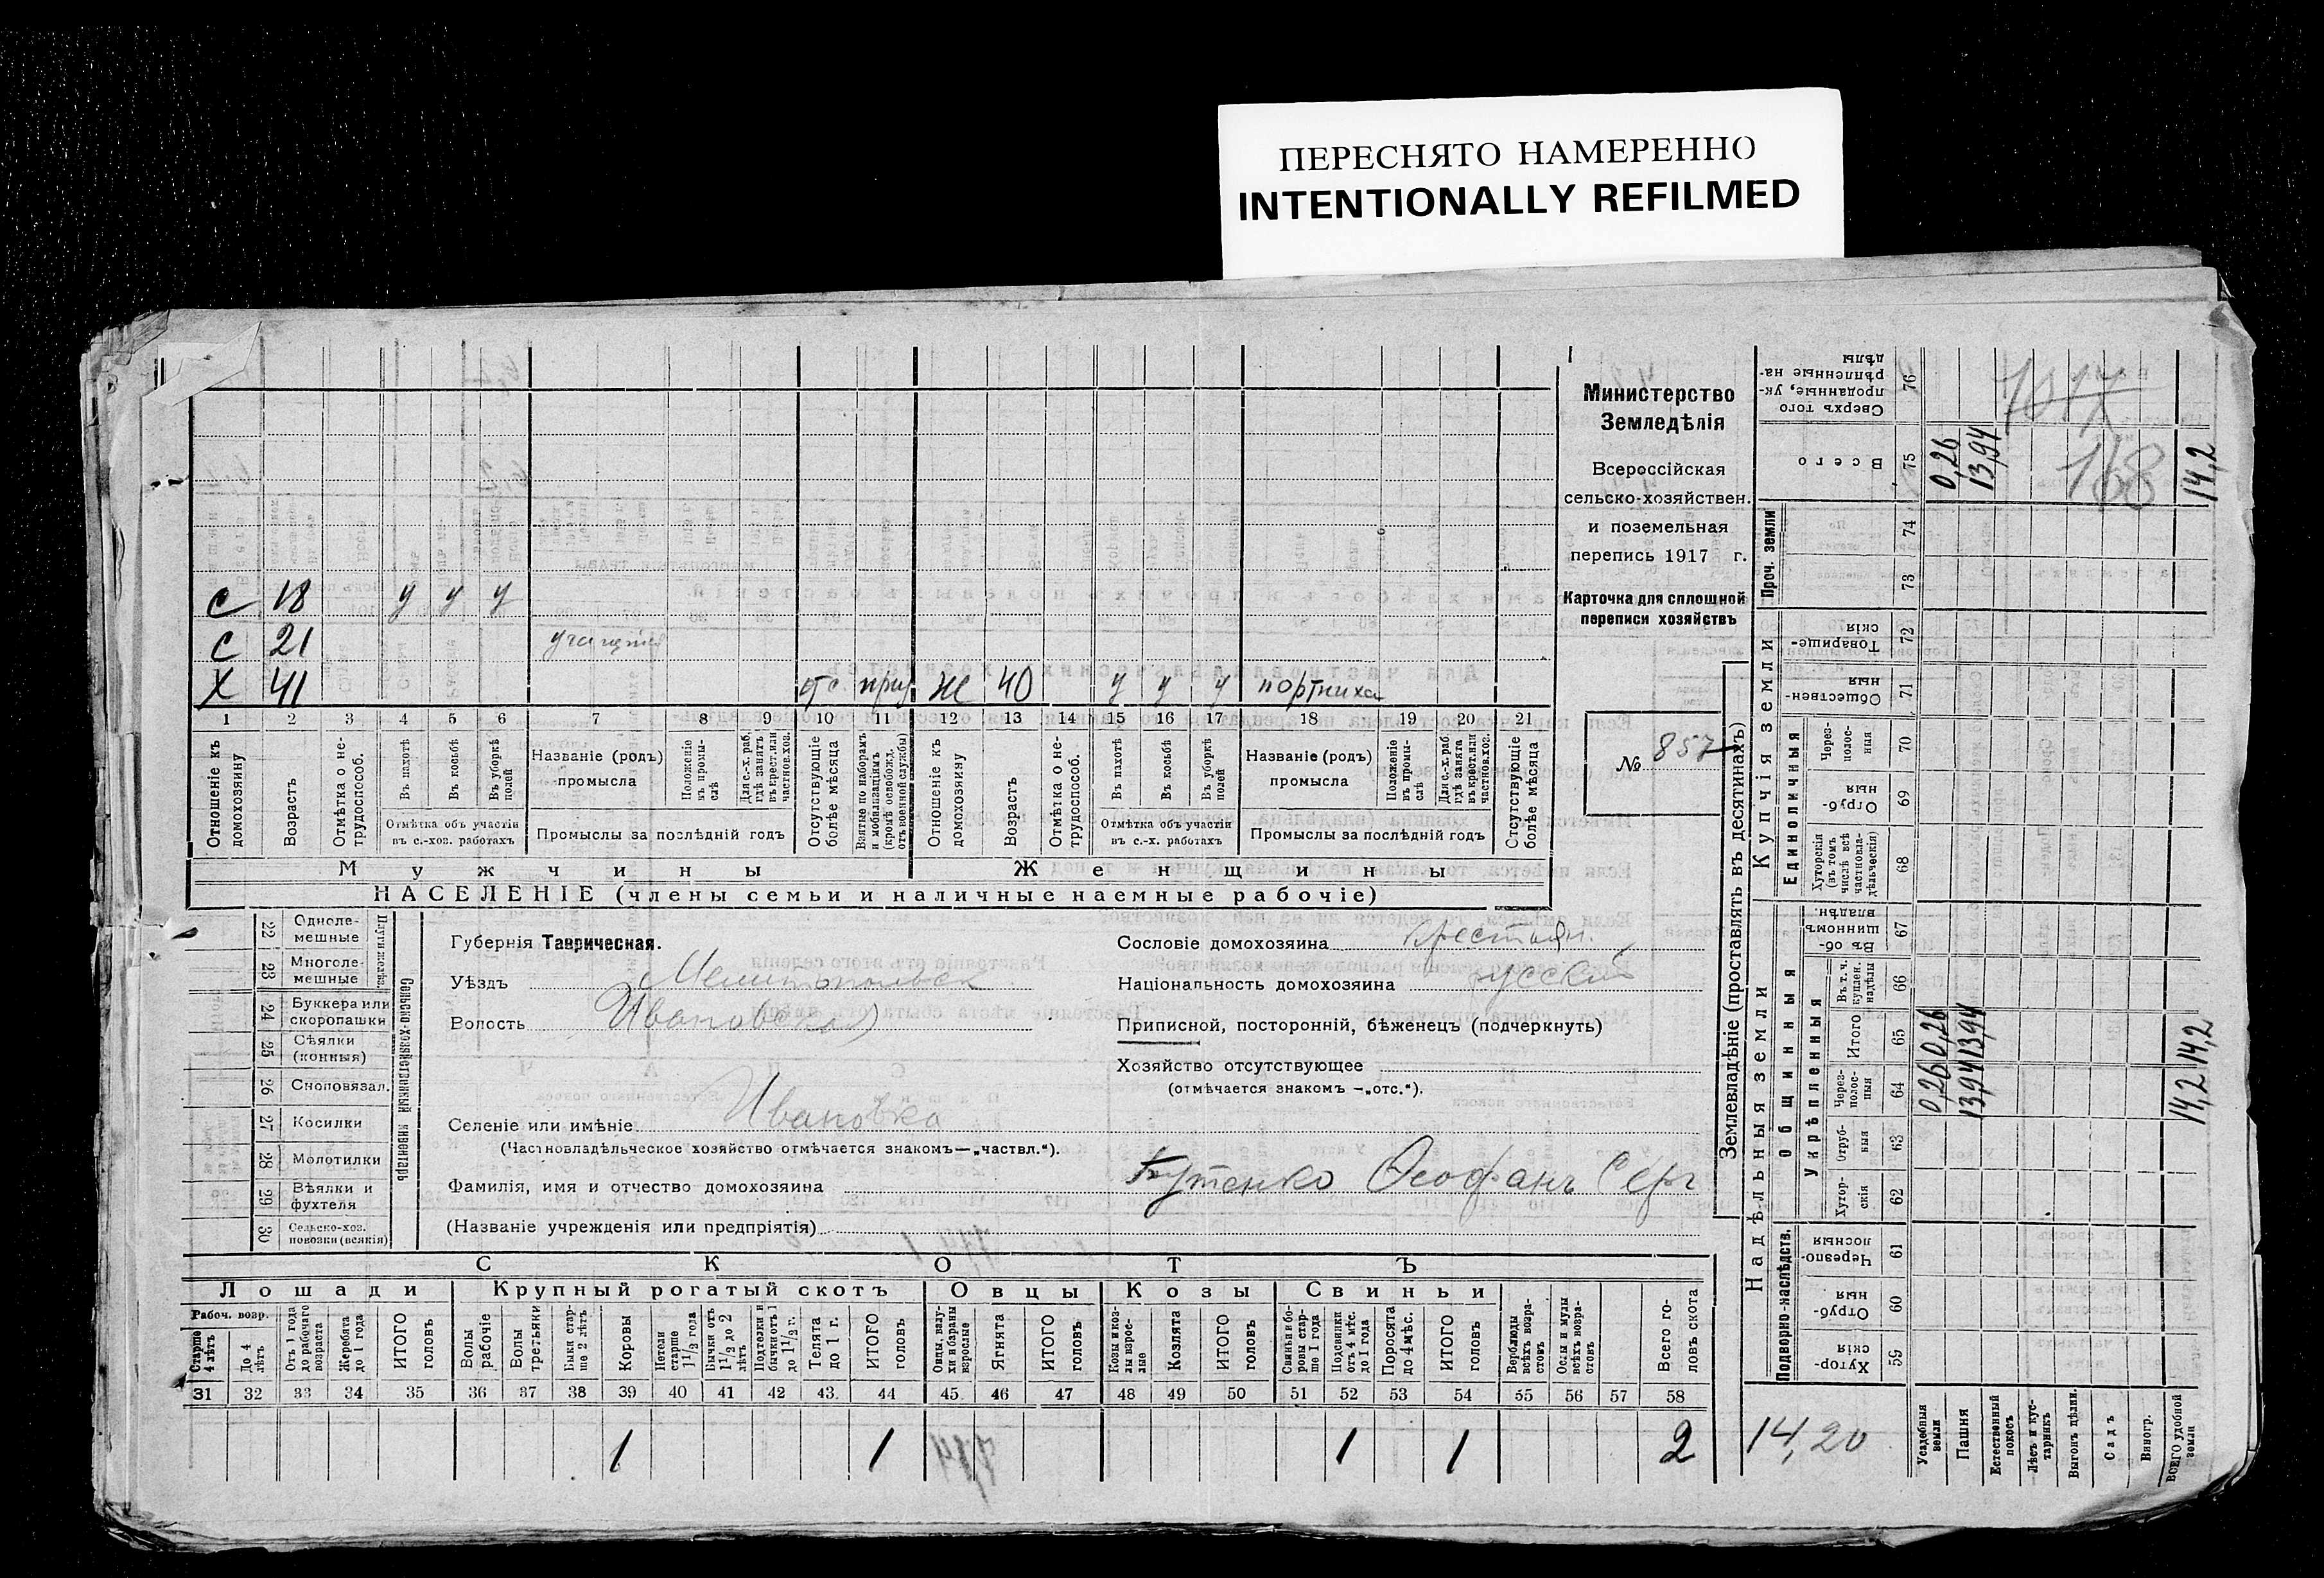 ПЕРЕСНЯТО НАМЕРЕННО
INTENTIONALLY REFILMED
Министерство
Земледѣлія
Всероссійская
сельско-хозяйствен.
и поземельная
перепись 1917 г.
Карточка для сплошной
переписи хозяйствъ
№ 857
С 18 у у у
С 21 учащійся
Х 41 отс. приз. Ж 40 у у у портниха
1 2 3 4 5 6 7 8 9 10 11 12 13 14 15 16 17 18 19 20 21
Отношеніе къ домохозяину
Возрастъ
Отмѣтка о не-трудоспособ.
Въ пахотѣ
Въ косьбѣ
Въ уборкѣ полей
Отмѣтка объ участіи въ с.-хоз. работахъ
Названіе (родъ) промысла
Положеніе къ промы-слѣ
Для с.-х. раб. гдѣ занятъ въ крест. или частнов. хоз.
Промыслы за послѣдній годъ
Отсутствующіе болѣе мѣсяца
Взятые по наборамъ и мобилизаціямъ (кромѣ освобожд. отъ военной службы)
Отношеніе къ домохозяину
Возрастъ
Отмѣтка о не-трудоспособ.
Въ пахотѣ
Въ косьбѣ
Въ уборкѣ полей
Отмѣтка объ участіи въ с.-х. работахъ
Названіе (родъ) промысла
Положеніе въ промы-слѣ
Для с.-х. раб. гдѣ занята въ крест. или частнов. хоз.
Промыслы за послѣдній годъ
Отсутствующіе болѣе мѣсяца
Мужчины Женщины
НАСЕЛЕНІЕ (члены семьи и наличные наемные рабочіе)
22 Одноле-мешные
23 Многоле-мешные
24 Буккера или скоропашки
25 Сѣялки (конныя)
26 Сноповязал.
27 Косилки
28 Молотилки
29 Вѣялки и фухтеля
30 Сельско-хоз. повозки (всякія)
Сельско-хозяйственный инвентарь
Губернія Таврическая.
Уѣздъ Мелитопольск
Волость Ивановская
Селеніе или имѣніе Ивановка
(Частновладѣльческое хозяйство отмѣчается знакомъ—„частвл.“).
Фамилія, имя и отчество домохозяина Бутенко Ѳеофанъ Серг
(Названіе учрежденія или предпріятія)
Сословіе домохозяина крестьян.
Національность домохозяина русскій
Приписной, посторонній, бѣженецъ (подчеркнуть)
Хозяйство отсутствующее
(отмѣчается знакомъ —„отс.“).
СКОТЪ
Лошади Крупный рогатый скотъ Овцы Козы Свиньи
Рабоч. возр.
Старше 4 лѣтъ
До 4 лѣтъ
Отъ 1 года до рабочаго возраста
Жеребята до 1 года
ИТОГО головъ
Волы рабочіе
Волы третьяки
Быки стар-ше 2 лѣтъ
Коровы
Нетели старше 1 1/2 года
Бычки отъ 1 1/2 до 2 лѣтъ
Подтелки и бычки отъ 1 до 1 1/2 г.
Телята до 1 г.
ИТОГО головъ
Овцы, валу-хи и бараны взрослые
Ягнята
ИТОГО головъ
Козы и коз-лы взрос-лые
Козлята
ИТОГО головъ
Свиньи и бо-ровы стар-ше 1 года
Подсвинки отъ 4 мѣс. до 1 года
Поросята до 4 мѣс.
ИТОГО головъ
Верблюды всѣхъ возра-стовъ
Ослы и мулы всѣхъ возра-стовъ
Всего го-ловъ скота
31 32 33 34 35 36 37 38 39 40 41 42 43. 44 45. 46 47 48 49 50 51 52 53 54 55 56 57 58
1 1 1 1 2
Землевладѣніе (проставлять въ десятинахъ)
Надѣльныя земли
Купчія земли
Проч. земли
Подворно-наслѣдств.
Общинныя
Укрѣпленныя
Единоличныя
59 Хутор-скія
60 Отруб-ныя
61 Черезпо-лосныя
62 Хутор-скія
63 Отруб-ныя
64 Через-полос-ныя
65 Итого
66 Въ т. ч. куплен. надѣлы
67 Въ об-щинномъ владѣн.
68 Хуторскія (въ томъ числѣ всѣ частновла-дѣльческія)
69 Отруб-ныя
70 Черезполос-ныя
71 Обществен-ныя
72 Товарище-скія
73
74
75 Всего
76 Сверхъ того проданные, ук-рѣпленные на-дѣлы
Усадебныя земли 0,26 0,26 0,26
Пашня 13,94 13,94 13,94
Естественный покосъ
Лѣсъ и кус-тарникъ
Выгонъ цѣлин.
Садъ
Виногр.
ВСЕГО удобной земли 14,2 14,2 14,2
14,20
168